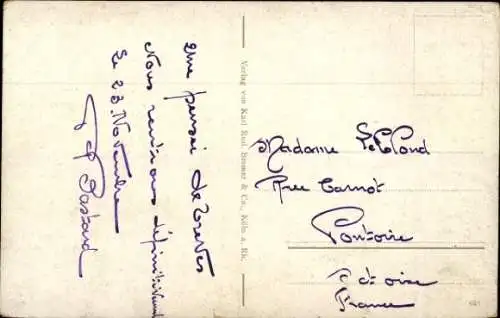 Une pensée de Trèves
Nous rentrons définitivement
le 23 Novembre
Verlag von Karl Rud. Bremer & Co., Köln a. Rh.
Madame Leblond
Rue Carnot
Pontoise
S et oise
France